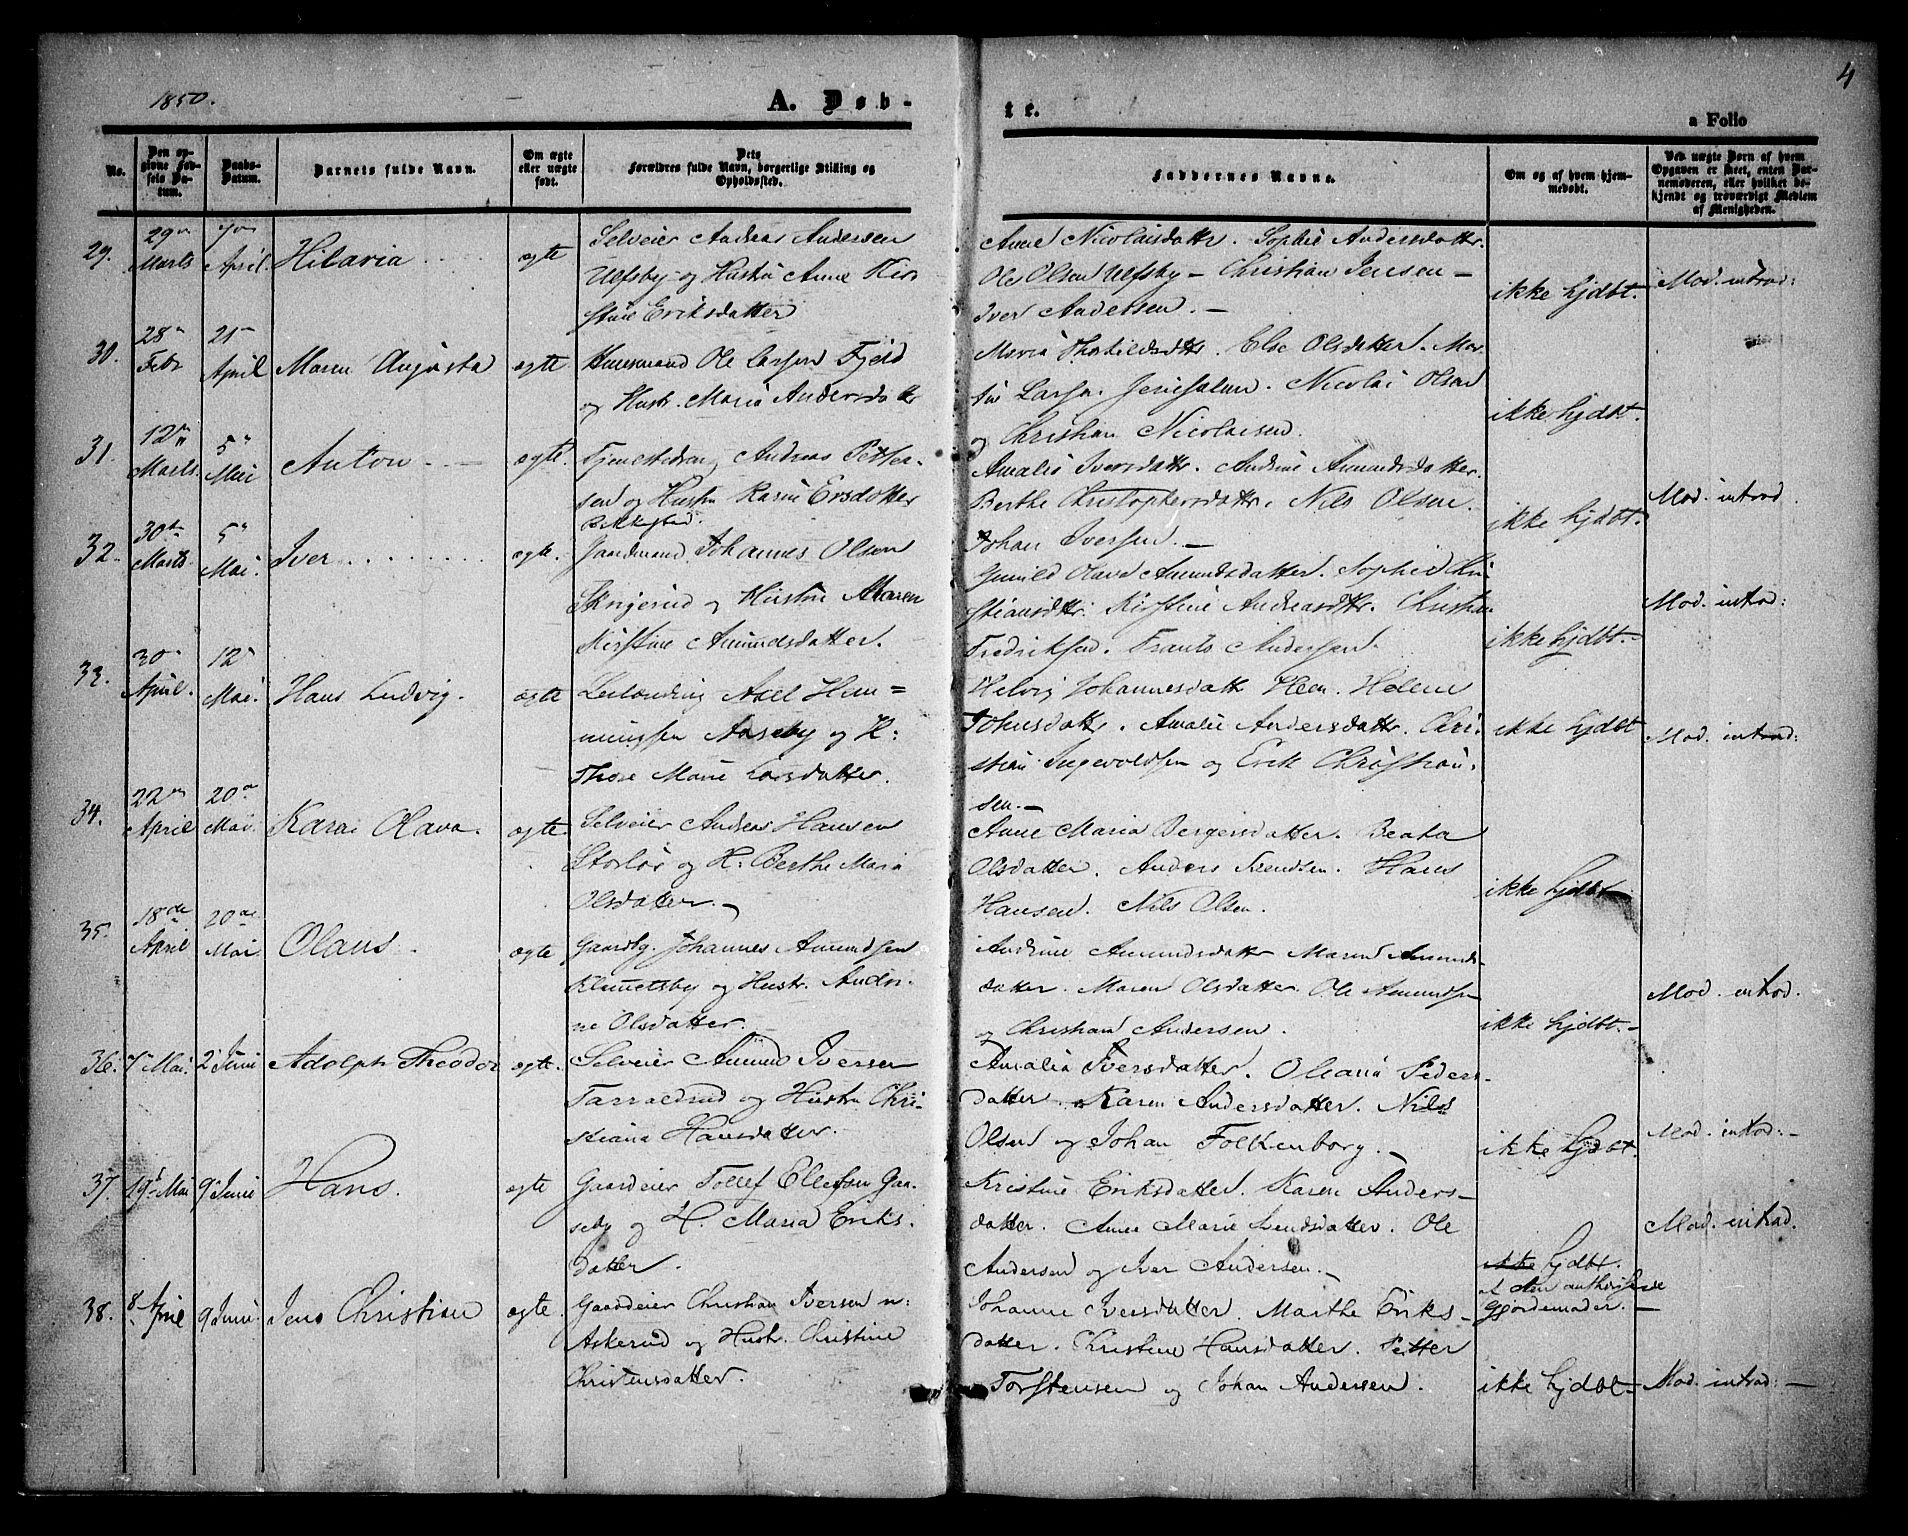 1850.
A. Døb-
te.
a Folio
4
No.
Den op-
givne Fød-
sels Da-
tum.
Daabs-
Datum.
Barnets fulde Navn.
Om ægte
eller uægte
født.
Dets
Forældres fulde Navn, borgerlige Stilling og
Opholdssted.
Faddernes Navne.
Om og af hvem hjem-
medøbt.
Ved uægte Born af hvem
Opgaven er skeet, enten Bar-
nemoderen, eller hvilket be-
kjendt og troværdigt Medlem
af Menigheden.
29.
29de
Marts
7de
April.
Hilaria
ægte
Selveier Andreas Andersen
Ulfsby og Hustru Anne Kir-
stine Eriksdatter
Anne Nicolaisdattr. Sophie Andersdattr.
Ole Olsen Ulfsby - Christian Jensen -
Iver Andersen. -
ikke hjdbt.
Mod. introd:
30.
28
Febr
21
April
Maren Augusta
ægte
Huusmand Ole Larsen Fjeld
og Hustr. Maria Andersdattr
Maria Thorkildsdttr. Else Olsdatter. Mar-
tin Larsen Jerusalem. Nicolai Olsen
og Christian Nicolaisen.
ikke hjdbt.
31.
12
Marts.
5
Mai
Anton
ægte.
Tjenestedreng Andreas Petter-
sen og Hustru Karine Ersdatter
Bekkested.
Amalie Iversdattr. Andrine Amundsdatter.
Berthe Christophersdattr. Nils Olsen.
Johan Iversen. -
ikke hjdbt.
Mod. introd.
32.
30te
Marts
5
Mai.
Iver
ægte.
Gaardmand Johannes Olsen
Skrigerud og Hustru Maren
Kirstine Amundsdatter.
Gunild Olava Amundsdatter. Sophie Chri-
stiansdttr. Kirstine Andreasdttr. Christian
Fredriksen. Frants Andersen.
ikke hjdbt.
Mod. introd:
33.
30
April.
12
Mai.
Hans Ludvig.
ægte
Leilænding Axel Hem-
mingsen Aaseby og H:
Thore Marie Larsdatter.
Helvig Johannesdattr Heen. Helene
Johnsdattr. Amalie Andersdattr. Chri-
stian Ingevoldsen og Erik Christian-
sen. -
ikke hjdbt
Mod. introd:
34.
22
April
20de
Mai.
Karen Olava.
ægte.
Selveier Andreas Hansen
Storlør og H: Berthe Maria
Olsdatter. -
Anne Maria Borgersdatter. Beata
Olsdatter. Anders Svendsen. Hans
Hansen. Nils Olsen.
ikke hjdbt
35.
18de
April
20de
Mai
Olaus.
ægte
Gaardbr. Johannes Amundsen
Klemetsby og Hustr. Andri-
ne Olsdatter.
Andrine Amundsdatter Maren Amunds-
datter. Maren Olsdatter. Ole Amundsen
og Christian Andersen.
ikke hjdbt. -
Mod. introd.
36.
7 Mai.
2 Juni
Adolph Theodor
ægte.
Selveier Amund Iversen
Tarraldrud og Hustru Chri-
stiana Hansdatter.
Amalia Iversdatter. Oleana Peders-
datter. Karen Andersdatter. Nils
Olsen og Johan Folkenborg. -
ikke hjdbt.
Mod. introd: -
37.
19 Mai
9 Juni
Hans.
ægte
Gaardeier Tollef Ellefsen Gaa-
seby og H. Maria Eriks-
datter.
Kristine Eriksdatter. Karen Anders-
datter. Anne Marie Svendsdatter. Ole
Andersen og Iver Andersen. -
ikke hjdbt.
af den authoriserede
Gjordemoder. -
Mod. introd.
38.
8 April
9 Juni
Jens Christian
ægte.
Gaardeier Christian Iversen n:
Askerud og Hustr. Christine
Christensdatter.
Johanne Iversdatter. Marthe Eriks-
datter. Christine Hansdatter. Petter
Torstensen og Johan Andersen.
ikke hjdbt -
Mod. introd: -